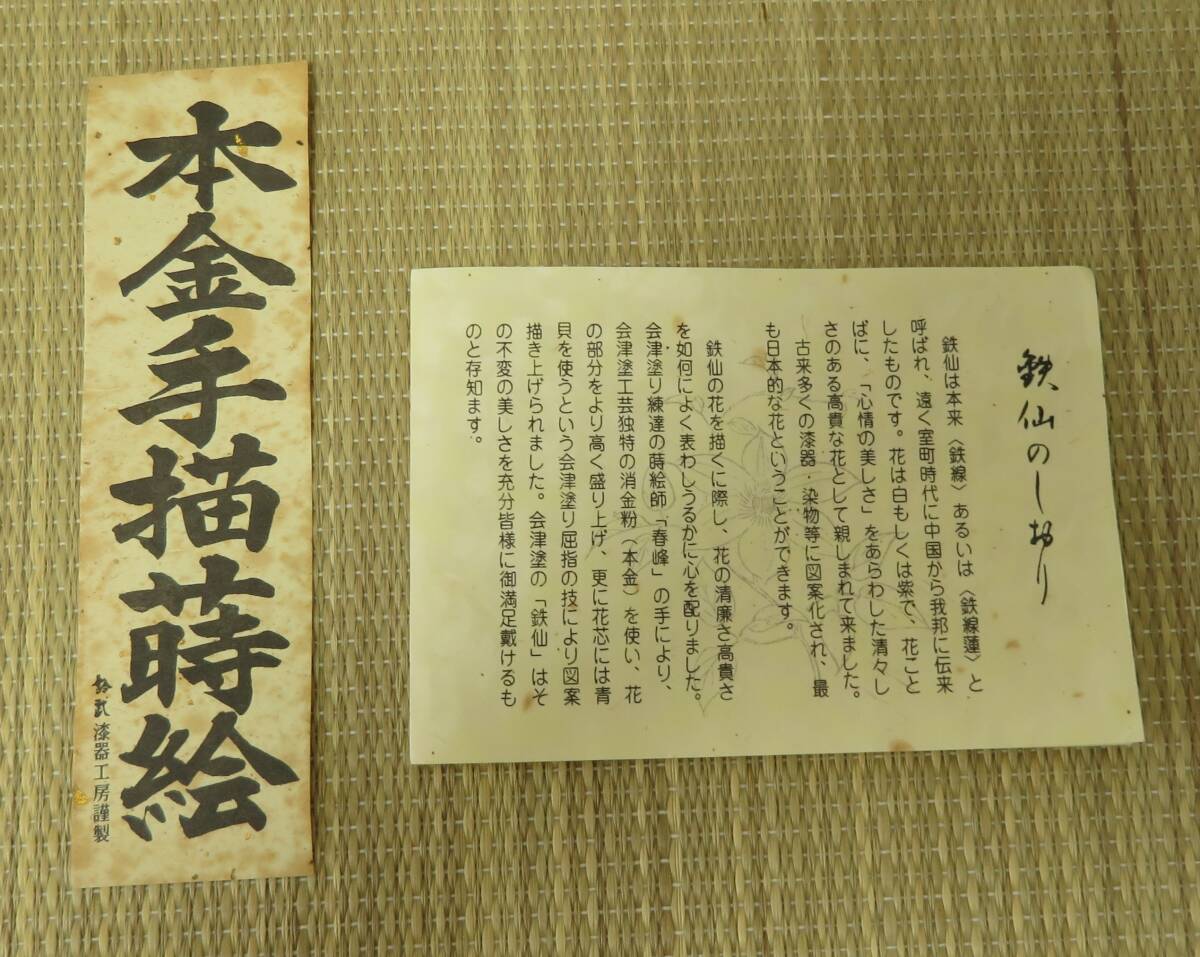 本金手描蒔絵
拾弐漆器工房謹製
鉄仙のしおり
鉄仙は本来〈鉄線〉あるいは〈鉄線蓮〉と
呼ばれ、遠く室町時代に中国から我邦に伝来
したものです。花は白もしくは紫で、花こと
ばに、「心情の美しさ」をあらわした清々し
さのある高貴な花として親しまれて来ました。
古来多くの漆器・染物等に図案化され、最
も日本的な花ということができます。
鉄仙の花を描くに際し、花の清廉さ高貴さ
を如何によく表わしうるかに心を配りました。
会津塗り練達の蒔絵師「春峰」の手により、
会津塗工芸独特の消金粉（本金）を使い、花
の部分をより高く盛り上げ、更に花芯には青
貝を使うという会津塗り屈指の技により図案
描き上げられました。会津塗の「鉄仙」はそ
の不変の美しさを充分皆様に御満足戴けるも
のと存知ます。